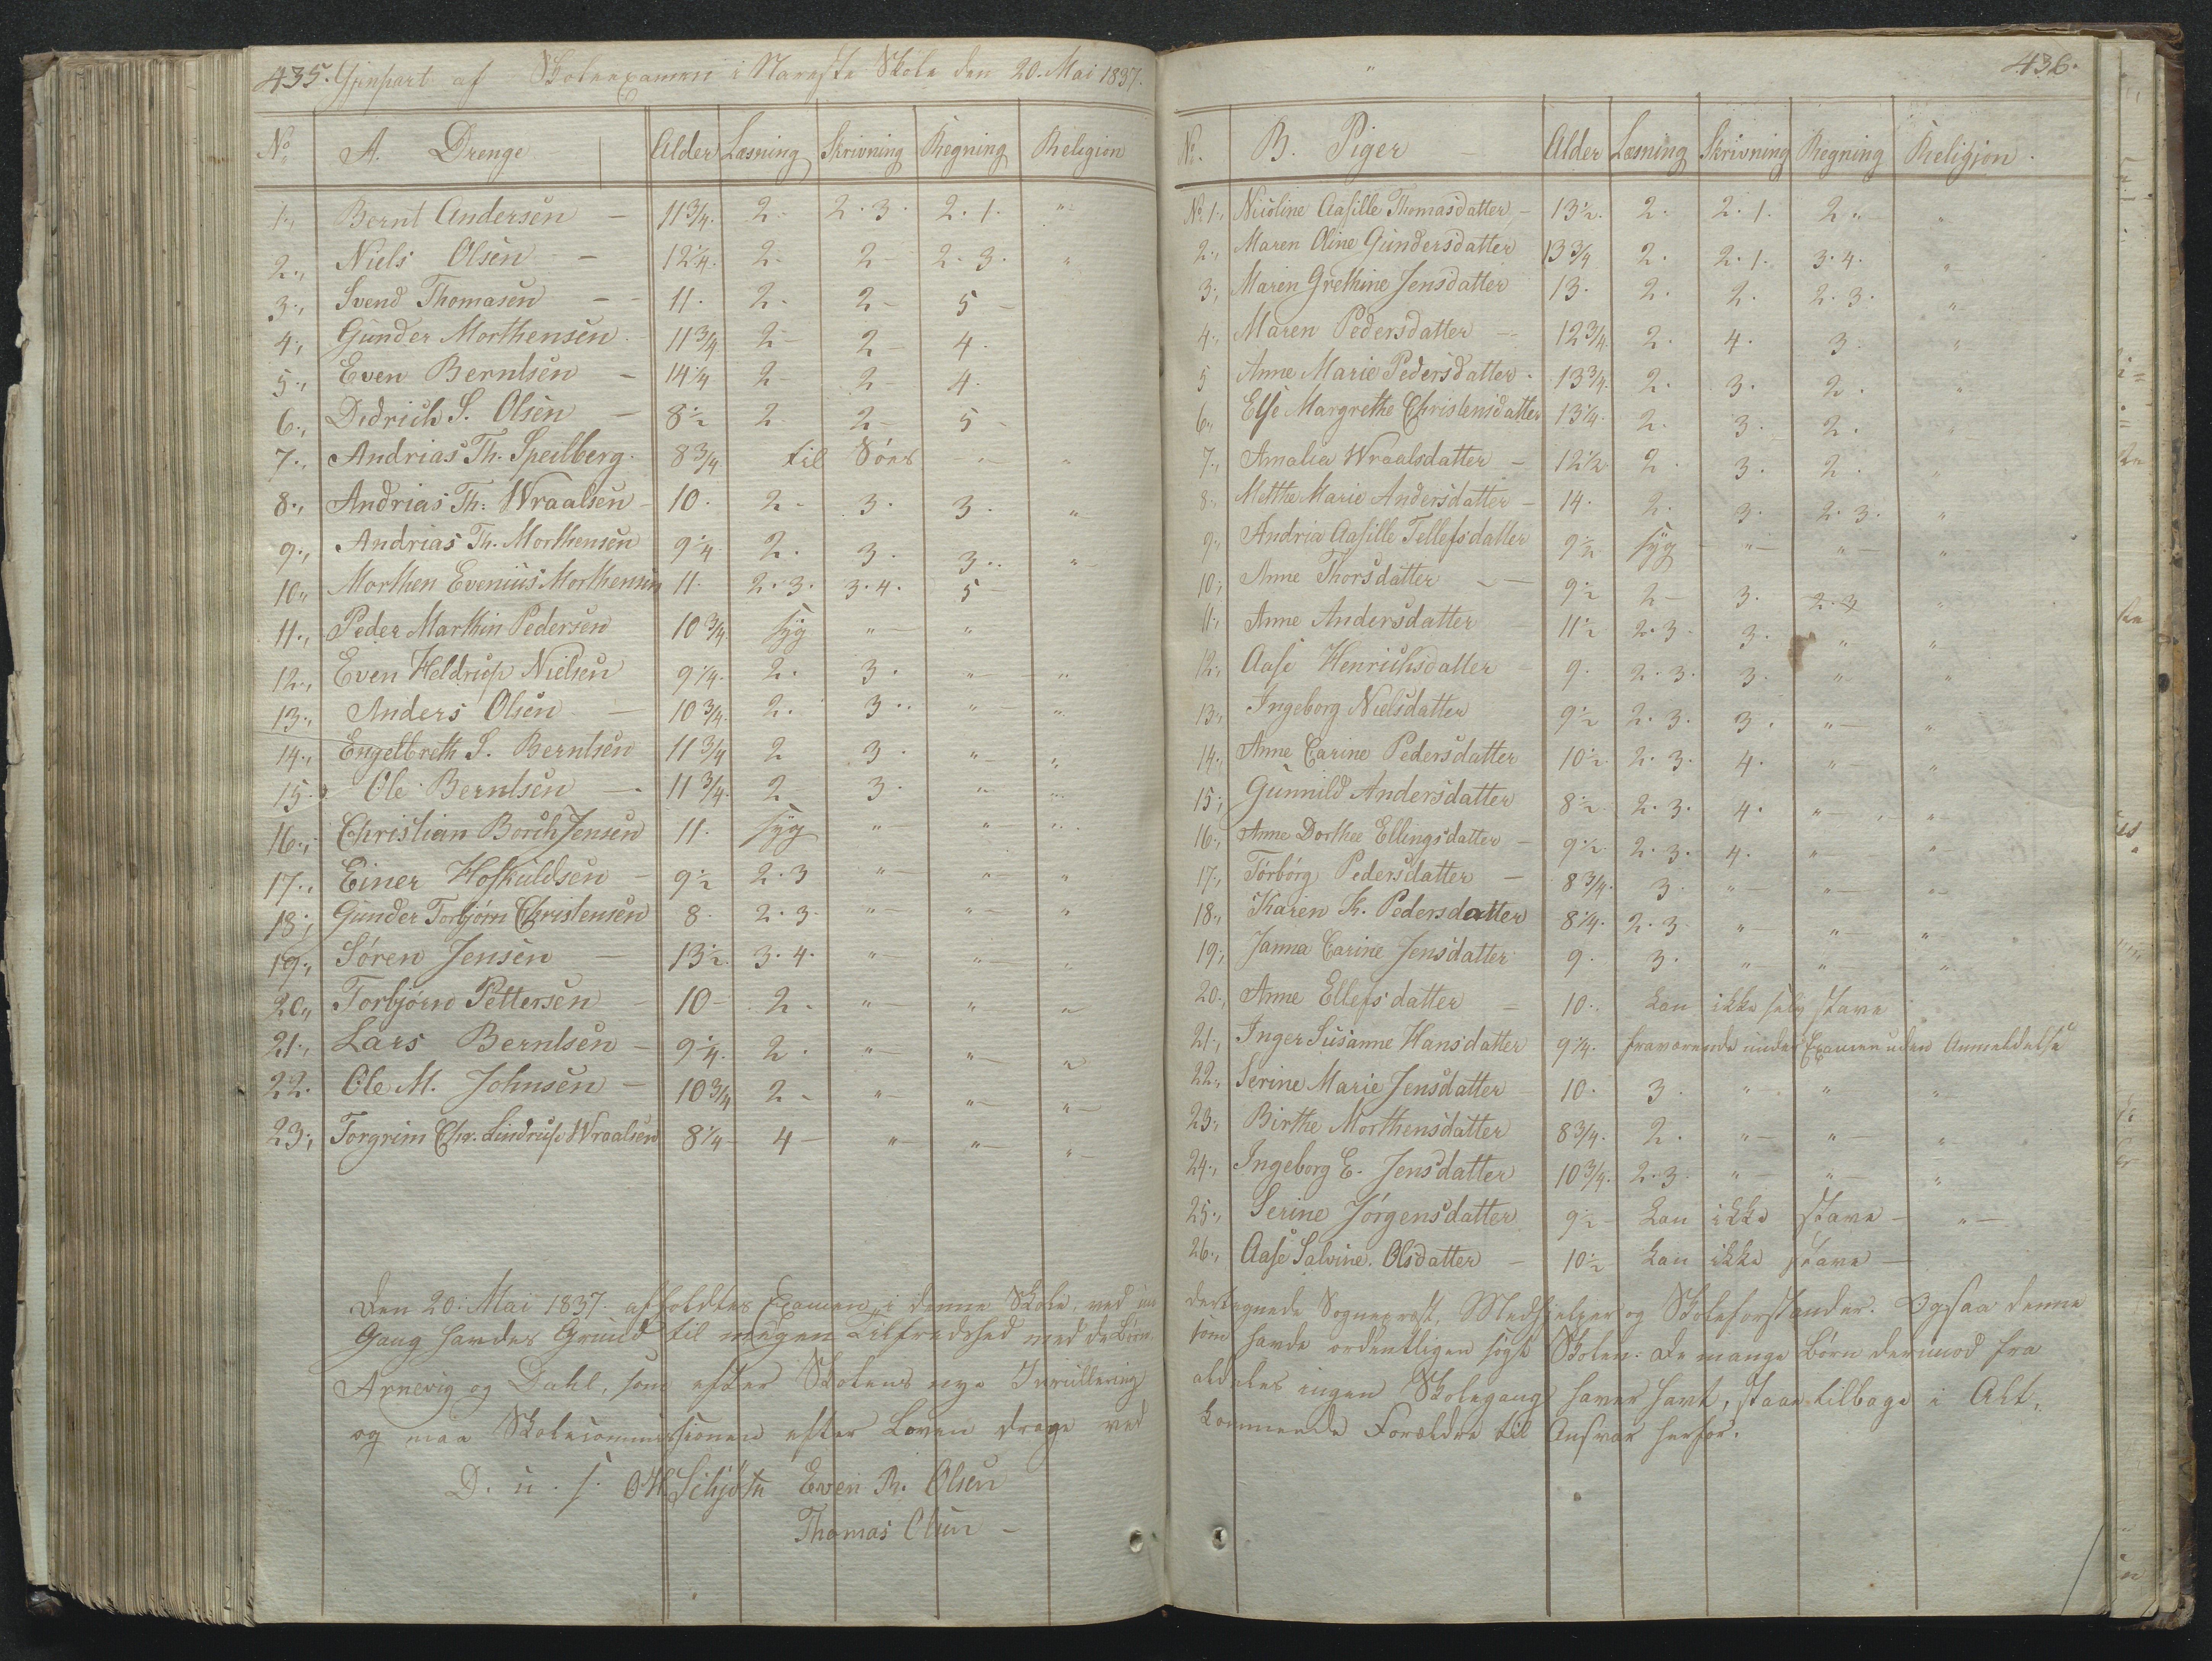 435. Gjenpart af Skoleexamen i Narestø Skole den 20. Mai 1837.
No A. Drenge Alder Læsning Skrivning Regning Religion
1., Bernt Andersen – 11 3/4. 2. 2. 3. 2. 1. "
2., Niels Olsen – 12 1/4. 2. 2 – 2. 3. "
3., Svend Thomasen – 11. 2. 2 – 5 –
4., Gunder Morthensen 11 3/4 2 – 2 – 4.
5., Even Berntsen – 14 1/4 2 – 2 4.
6., Didrich S. Olsen – 8 1/2 2 2 – 5 –
7., Andrias Th. Speilberg. 8 3/4 til Søes – " – "
8., Andrias Th. Wraalsen – 10. 2 – 3. 3. "
9., Andrias Th. Morthensen 9 1/4 2. 3. 3.. "
10., Morthen Evenius Morthensen 11. 2. 3. 3. 4. 5 –
11., Peder Marthin Pedersen 10 3/4 syg " – "
12., Even Heldrup Nielsen 9 1/4. 2. 3. " – "
13., Anders Olsen – 10 3/4. 2. 3.. " – "
14., Engelbreth S. Berntsen 11 3/4 2 3. " – "
15., Ole Berntsen – 11 3/4. 2 3. " "
16., Christian Borch Jensen 11. syg " – " "
17., Einer Hofkuldsen – 9 1/2 2. 3 " – " – "
18., Gunder Torbjørn Christensen 8. 2. 3. " " – "
19., Søren Jensen – 13 1/2. 3. 4. " – " – "
20., Torbjørn Pettersen – 10 – 2. " – " "
21., Lars Berntsen – 9 1/4. 2. " " – "
22. Ole M. Johnsen – 10 3/4 2 – " – " – " –
23., Torgrim Chr. Lindrup Wraalsen 8 1/4 – 4 – " " – " –
Den 20. Mai 1837. afholdtes Examen i denne Skole, ved un
Gang havdes Grund til megen Tilfredshed med de Børn
Arnevig og Dahl, som efter Skolens nye Inrullering
og maa Skolecommissionen efter Loven drage ved
D. u. s. Even R. Olsen
Thomas Olsen –
" 436.
No. B. Piger – Alder Læsning Skrivning Regning Religion.
No. 1., Nicoline Aasille Thomasdatter – 13 1/2. 2. 2. 1. 2 " "
2., Maren Oline Gundersdatter 13 3/4 2. 2. 1. 3. 4. "
3., Maren Grethine Jensdatter 13. 2. 2. 2. 3. "
4., Maren Pedersdatter – 12 3/4. 2. 4. 3. "
5 Anne Marie Pedersdatter. 13 3/4. 2. 3. 2. "
6., Else Margrethe Christensdatter 13 1/4. 2. 3. 2. "
7., Amalia Wraalsdatter – 12 1/2 2. 3. 2. "
8., Metthe Marie Andersdatter – 14. 2. 3. 2. 3. "
9., Andria Aasille Tellefsdatter 9 1/2 syg – " – " – "
10., Anne Thorsdatter – 9 1/2 2 – 3. 2. 3 "
11., Anne Andersdatter 11 1/2 2. 3. 3. " "
12., Aase Henrichsdatter – 9. 2. 3. 3. " "
13., Ingeborg Nielsdatter 9 1/2 2. 3. 3. " – "
14., Anne Carine Pedersdatter 10 1/2. 2. 3. 4. " – "
15., Gunnild Andersdatter 8 1/2. 2. 3. 4. " – "
16., Anne Dorthee Ellingsdatter – 9 1/2. 2. 3. 4. " – " –
17., Torborg Pedersdatter – 8 3/4. 3. " – " – " –
18., Karen K. Pedersdatter 8 1/4. 2. 3. " – " – " –
19., Janna Carine Jensdatter 9. 3. " – " – "
20., Anne Ellefsdatter – 10. kan ikke selv stave
21., Inger Susanne Hansdatter 9 1/4. fraværende under Examen uden Anmeldelse
22., Serine Marie Jensdatter – 10. 3. " " "
23., Birthe Morthensdatter 8 3/4. 2. " – " – "
24., Ingeborg E. Jensdatter 10 3/4. 2. 3. " – " – "
25., Serine Jørgensdatter 9 1/2 – kan ikke stave – " –
26., Aase Salvine Olsdatter – 10 1/2 kan ikke stave –
dertegnede Sognepræst, Medhjelper og Skoleforstander. Ogsaa denne
som havde ordentligen søgt Skolen: De mange Børn derimod fra
aldeles ingen Skolegang haver havt, staae tilbage i Alt,
kommende Forældre til Ansvar herfor.